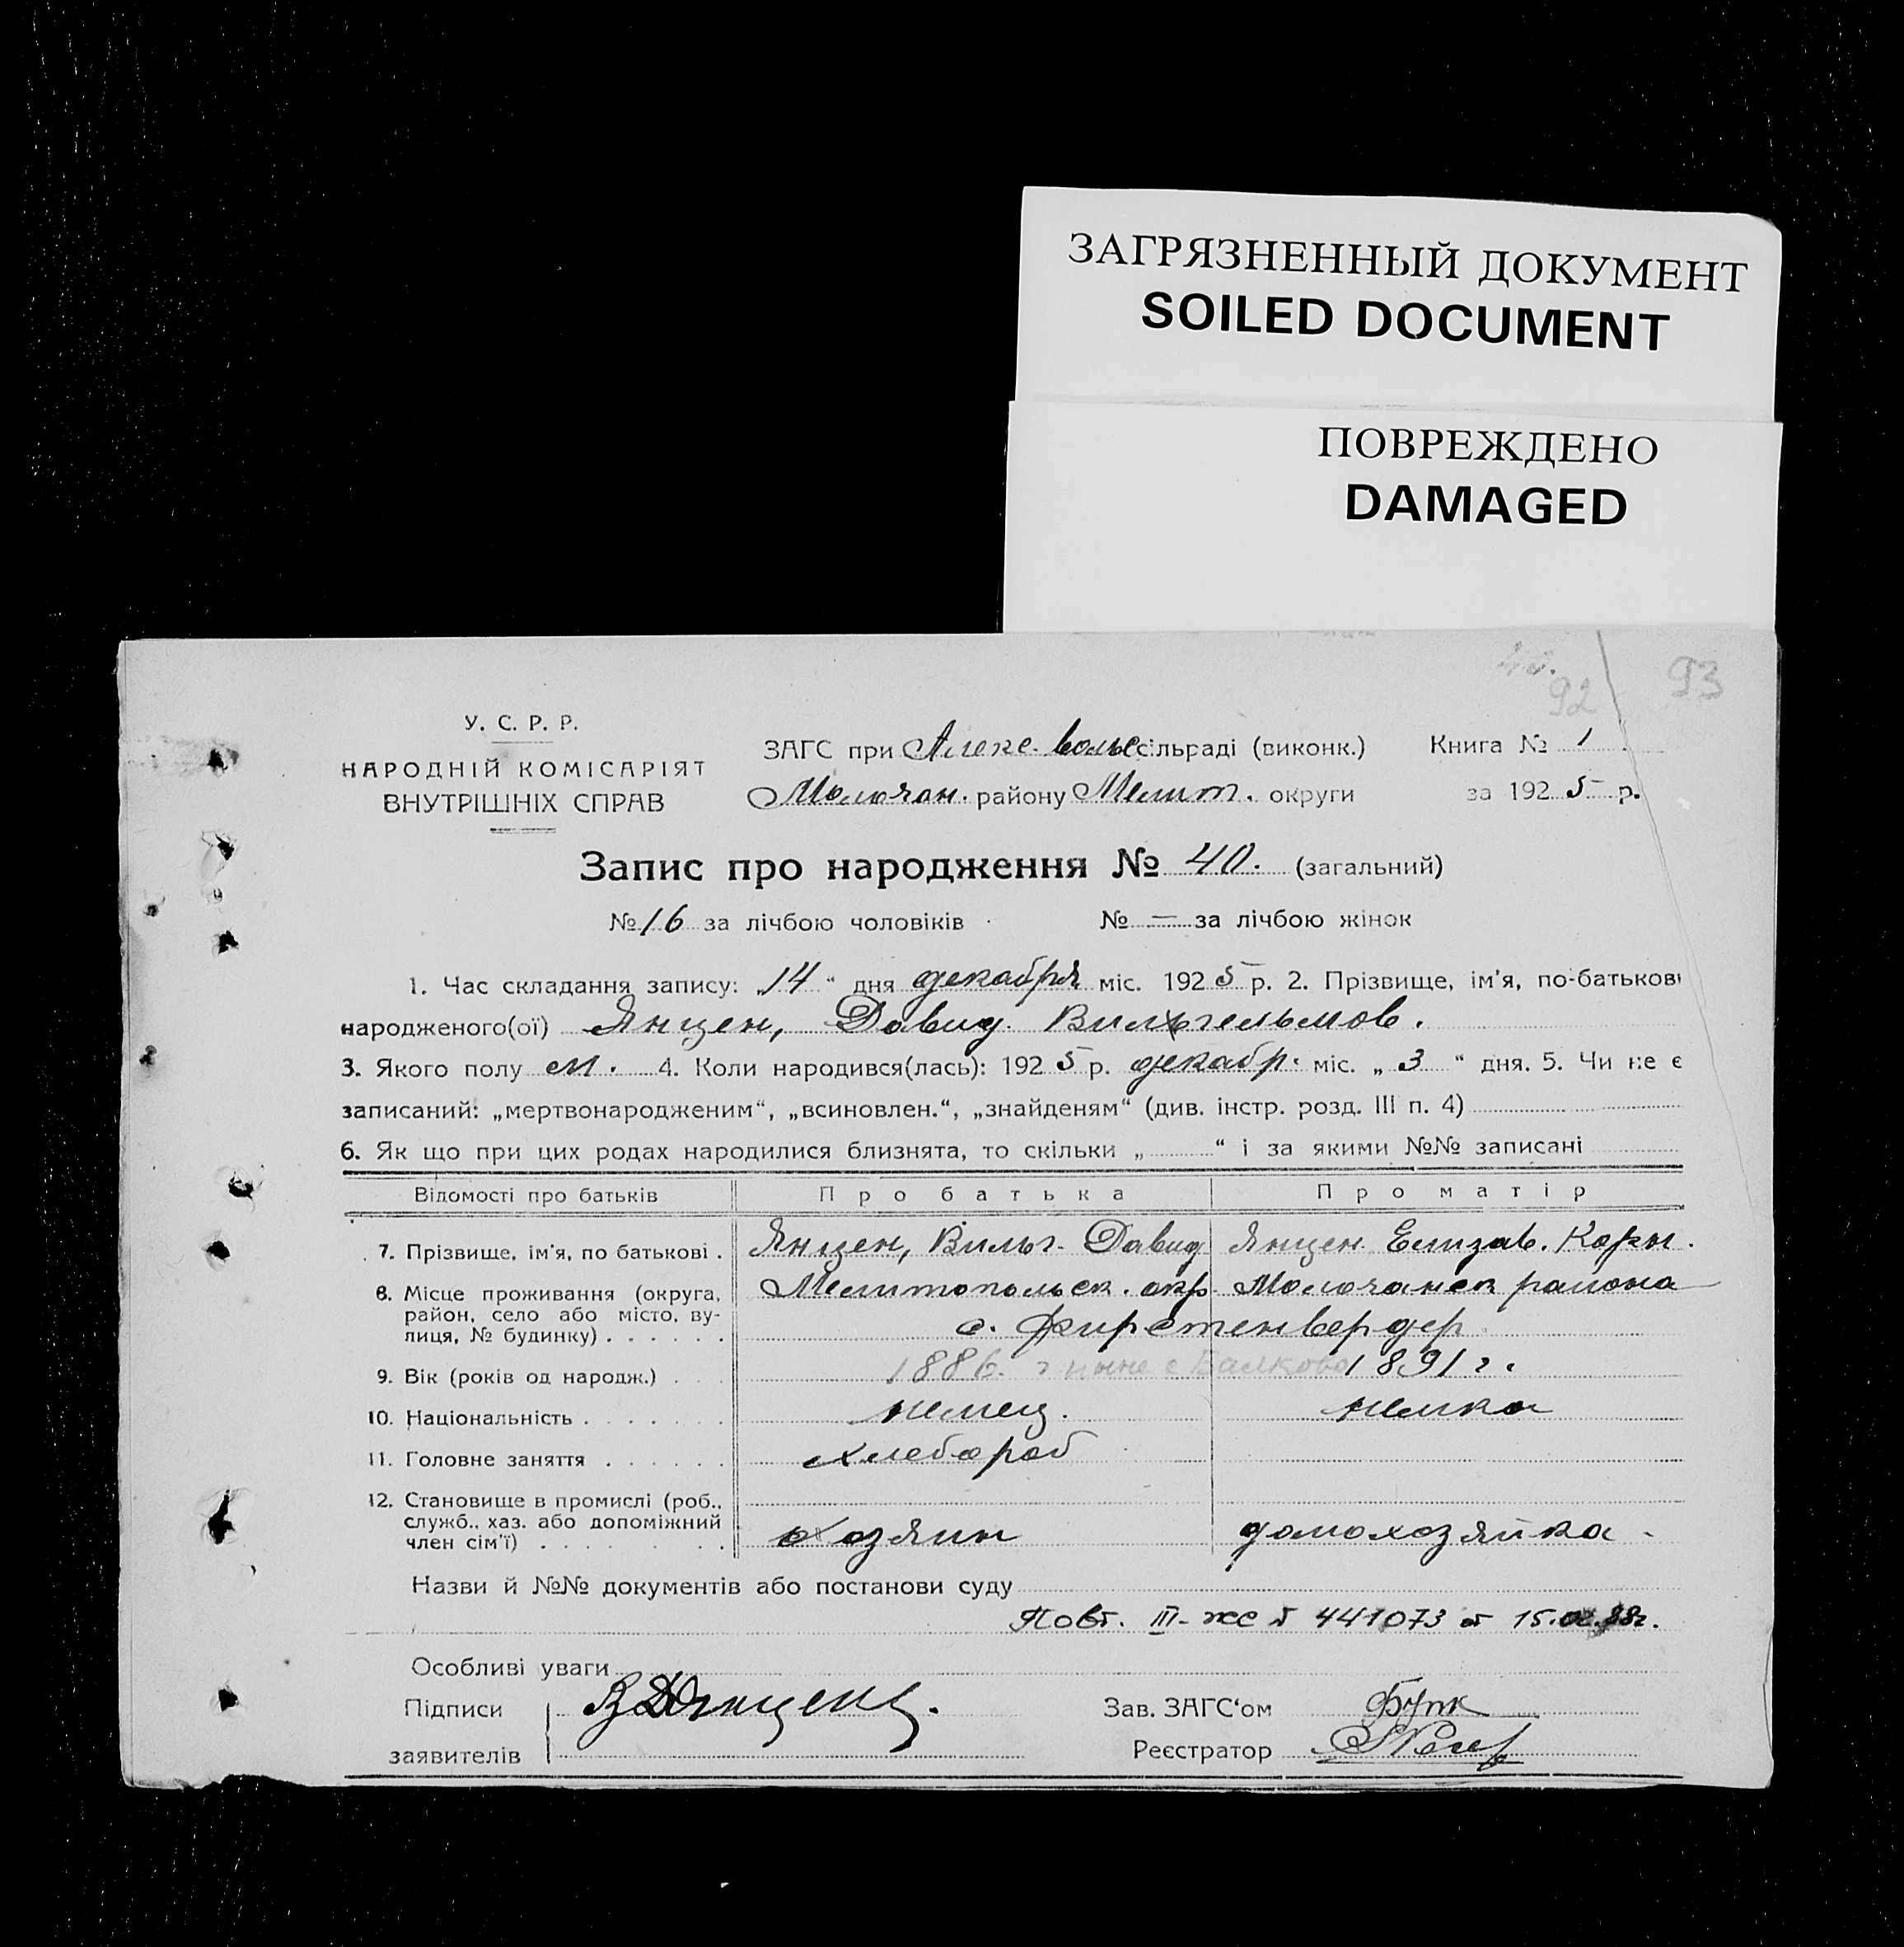 ЗАГРЯЗНЕННЫЙ ДОКУМЕНТ
SOILED DOCUMENT
ПОВРЕЖДЕНО
DAMAGED
92 93
У. С. Р. Р.
НАРОДНІЙ КОМІСАРІЯТ
ВНУТРІШНІХ СПРАВ
ЗАГС при сільраді (виконк.) Книга № 1
Молочан. району Мелит. округи за 1925 р.
Запис про народження № 40. (загальний)
№ 16 за лічбою чоловіків № — за лічбою жінок
1. Час складання запису: „14“ дня декабря міс. 1925 р. 2. Прізвище, ім'я, по-батькові
народженого(ої) Янцен, Давид Вильгельмов.
3. Якого полу м. 4. Коли народився(лась): 1925 р. декабр. міс. „3“ дня. 5. Чи не є
записаний: „мертвонародженим“, „всиновлен.“, „знайденям“ (див. інстр. розд. III п. 4)
6. Як що при цих родах народилися близнята, то скільки „ “ і за якими №№ записані
Відомості про батьків Про батька Про матір
7. Прізвище, ім'я, по батькові . Янцен, Вильг. Давид. Янцен Елизав. Корн.
8. Місце проживання (округа, район, село або місто, вулиця, № будинку) . . . . . . Мелитопольск. окр. Молочанск района
с. Фирстенвердер
9. Вік (років од народж.) . . . 1886 г ныне с Балково 1891 г.
10. Національність . . . . . . . немец. немка
11. Головне заняття . . . . . . хлебороб
12. Становище в промислі (роб., служб., хаз. або допоміжний член сім'ї) . . . . . . . хозяин домохозяйка
Назви й №№ документів або постанови суду
Повт. III-жс № 441073 от 15.
Особливі уваги
Підписи
заявителів
Зав. ЗАГС'ом
Реєстратор